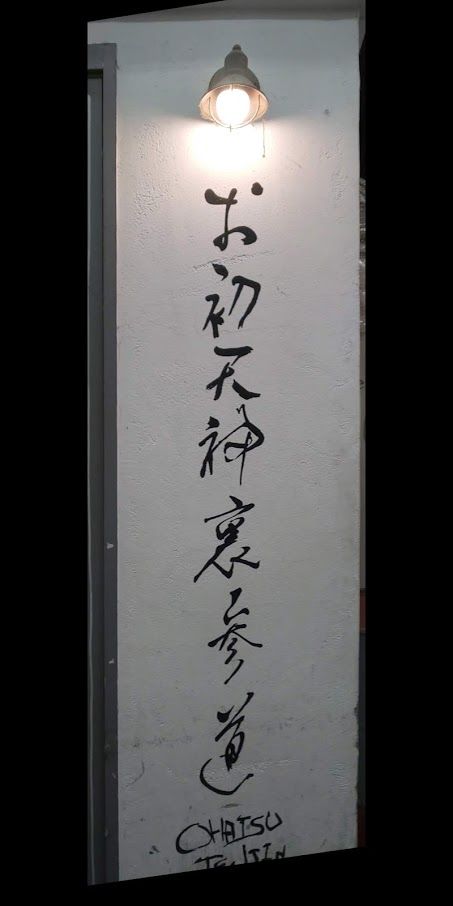 お初天神裏参道
OHATSU
TENJIN